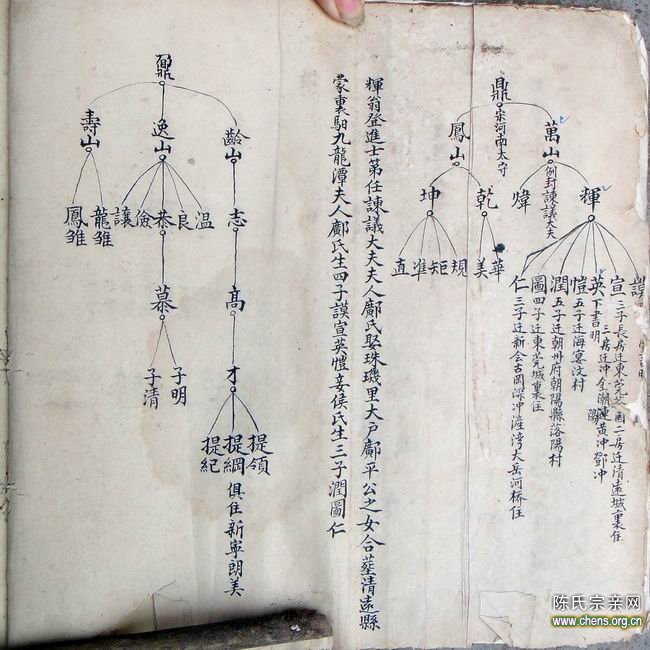 鼎
宗河南太守
萬山
例封諫議大夫
鳳山
輝
煒
乾
坤
謨
宣
英
愷
潤
圖
仁
下書明
五子迁海宴汶村
五子迁朝州府朝陽縣落陽村
四子迁東莞城裏住
三子迁新会古岡深冲
大岳河桥住
二房迁清遠城裏住
華
美
規
矩
準
直
輝翁登進士第任諫議大夫夫人鄺氏娶珠璣里大户鄺平公之女合塟清遠縣
蒙裏馿九龍潭夫人鄺氏生四子謨宣英愷妾侯氏生三子潤圖仁
齡山
逸山
壽山
志
高
才
提領
提綱
提紀
俱住新寧朗美
温
良
恭
儉
讓
慕
子明
子清
龍雛
鳳雛
陈氏宗亲网
www.chens.org.cn